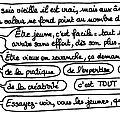 suis vieille il est vrai, mais aux â
valeur ne fond point au nombre d
Être jeune, c'est facile. tout
arrive sans effort, dès son plus
Être vieux en revanche, ça deman
de la pratique de l'expertise
de la créativité c'est TOUT
Essayez-voir, vous les jeunes, q